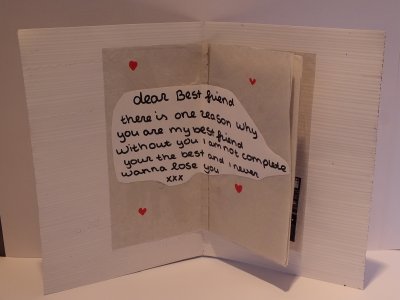 dear Best friend
there is one reason why
you are my best friend
without you i am not complete
your the best and i never
wanna lose you
xxx